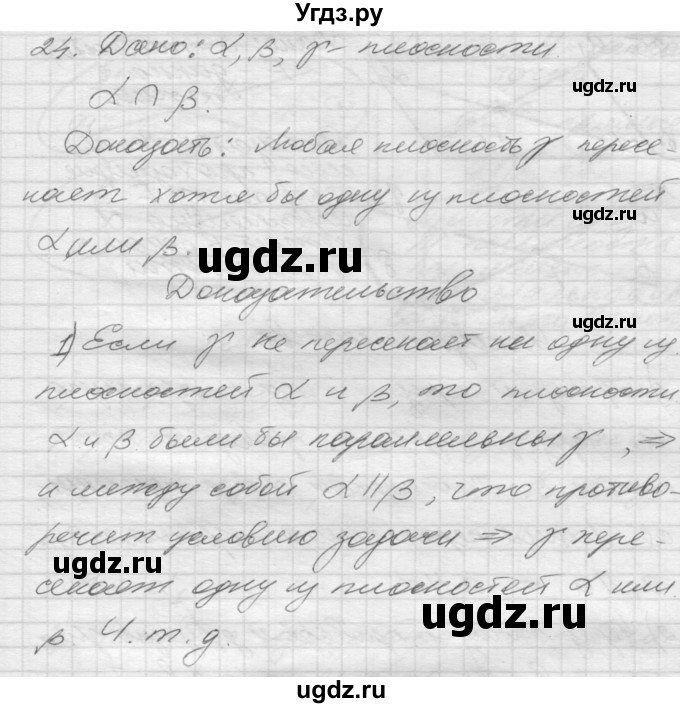 Угдз.ру
24. Дано: α, β, γ - плоскости
ugdz.ru
α ∩ β.
Доказать: Любая плоскость γ пересе-
ugdz.ru
кает хотя бы одну из плоскостей
ugdz.ru
α или β.
ugdz.ru
Доказательство
ugdz.ru
1) Если γ не пересекает ни одну из
плоскостей α и β, то плоскости
ugdz.ru
α и β были бы параллельны γ, ⇒
и между собой α || β, что противо-
речит условию задачи ⇒ γ пере-
ugdz.ru
секает одну из плоскостей α или
ugdz.ru
β. Ч.т.д.
ugdz.ru
ugdz.ru